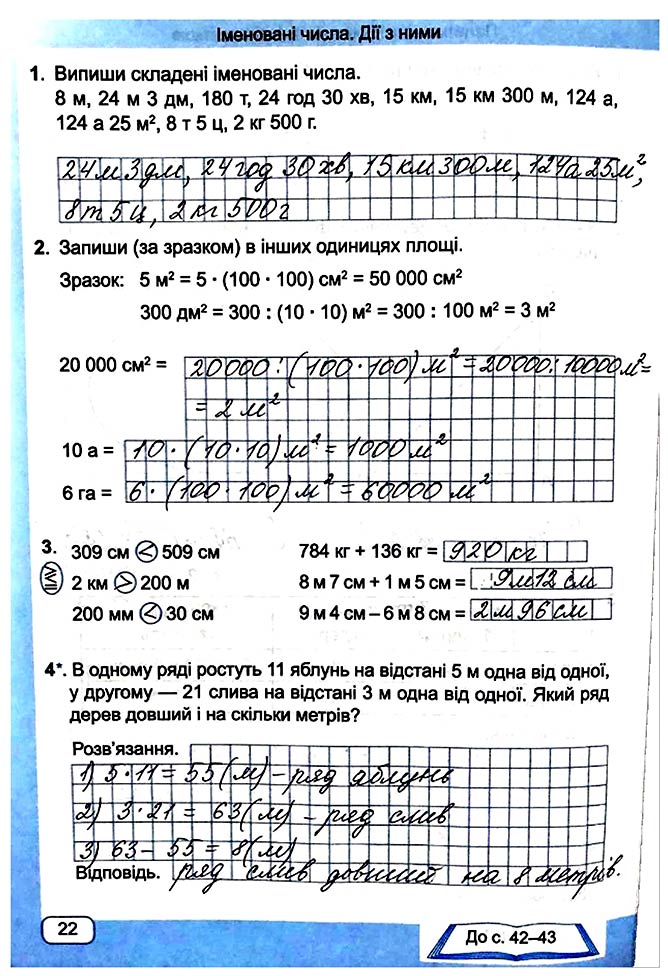 Іменовані числа. Дії з ними
1. Випиши складені іменовані числа.
8 м, 24 м 3 дм, 180 т, 24 год 30 хв, 15 км, 15 км 300 м, 124 а,
124 а 25 м², 8 т 5 ц, 2 кг 500 г.
24 м 3 дм, 24 год 30 хв, 15 км 300 м, 124 а 25 м²,
8 т 5 ц, 2 кг 500 г
2. Запиши (за зразком) в інших одиницях площі.
Зразок: 5 м² = 5 · (100 · 100) см² = 50 000 см²
300 дм² = 300 : (10 · 10) м² = 300 : 100 м² = 3 м²
20 000 см² = 20000 : (100 · 100) м² = 20000 : 10000 м² =
= 2 м²
10 а = 10 · (10 · 10) м² = 1000 м²
6 га = 6 · (100 · 100) м² = 60000 м²
3. 309 см < 509 см 784 кг + 136 кг = 920 кг
2 км > 200 м 8 м 7 см + 1 м 5 см = 9 м 12 см
200 мм < 30 см 9 м 4 см – 6 м 8 см = 2 м 96 см
4*. В одному ряді ростуть 11 яблунь на відстані 5 м одна від одної,
у другому — 21 слива на відстані 3 м одна від одної. Який ряд
дерев довший і на скільки метрів?
Розв'язання.
1) 5 · 11 = 55 (м) – ряд яблунь
2) 3 · 21 = 63 (м) – ряд слив
3) 63 – 55 = 8 (м)
Відповідь. ряд слив довший на 8 метрів.
22
До с. 42–43